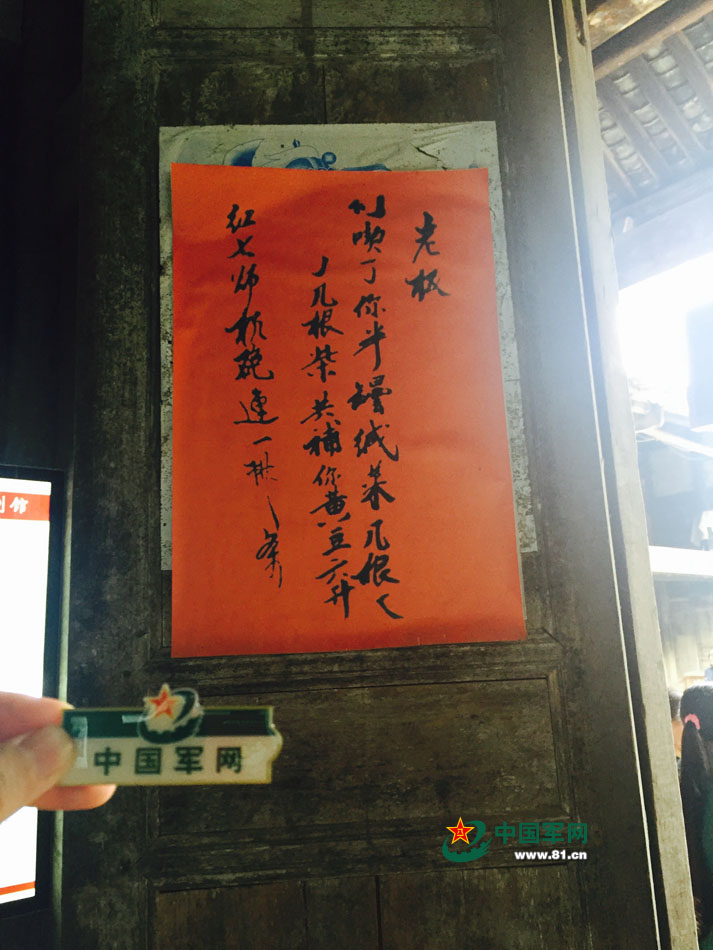 老板
喫了你半菜几根
几根柴共補你黄豆六升
红七师砲連一排条
馆
中国军网
中国军网
www.81.cn